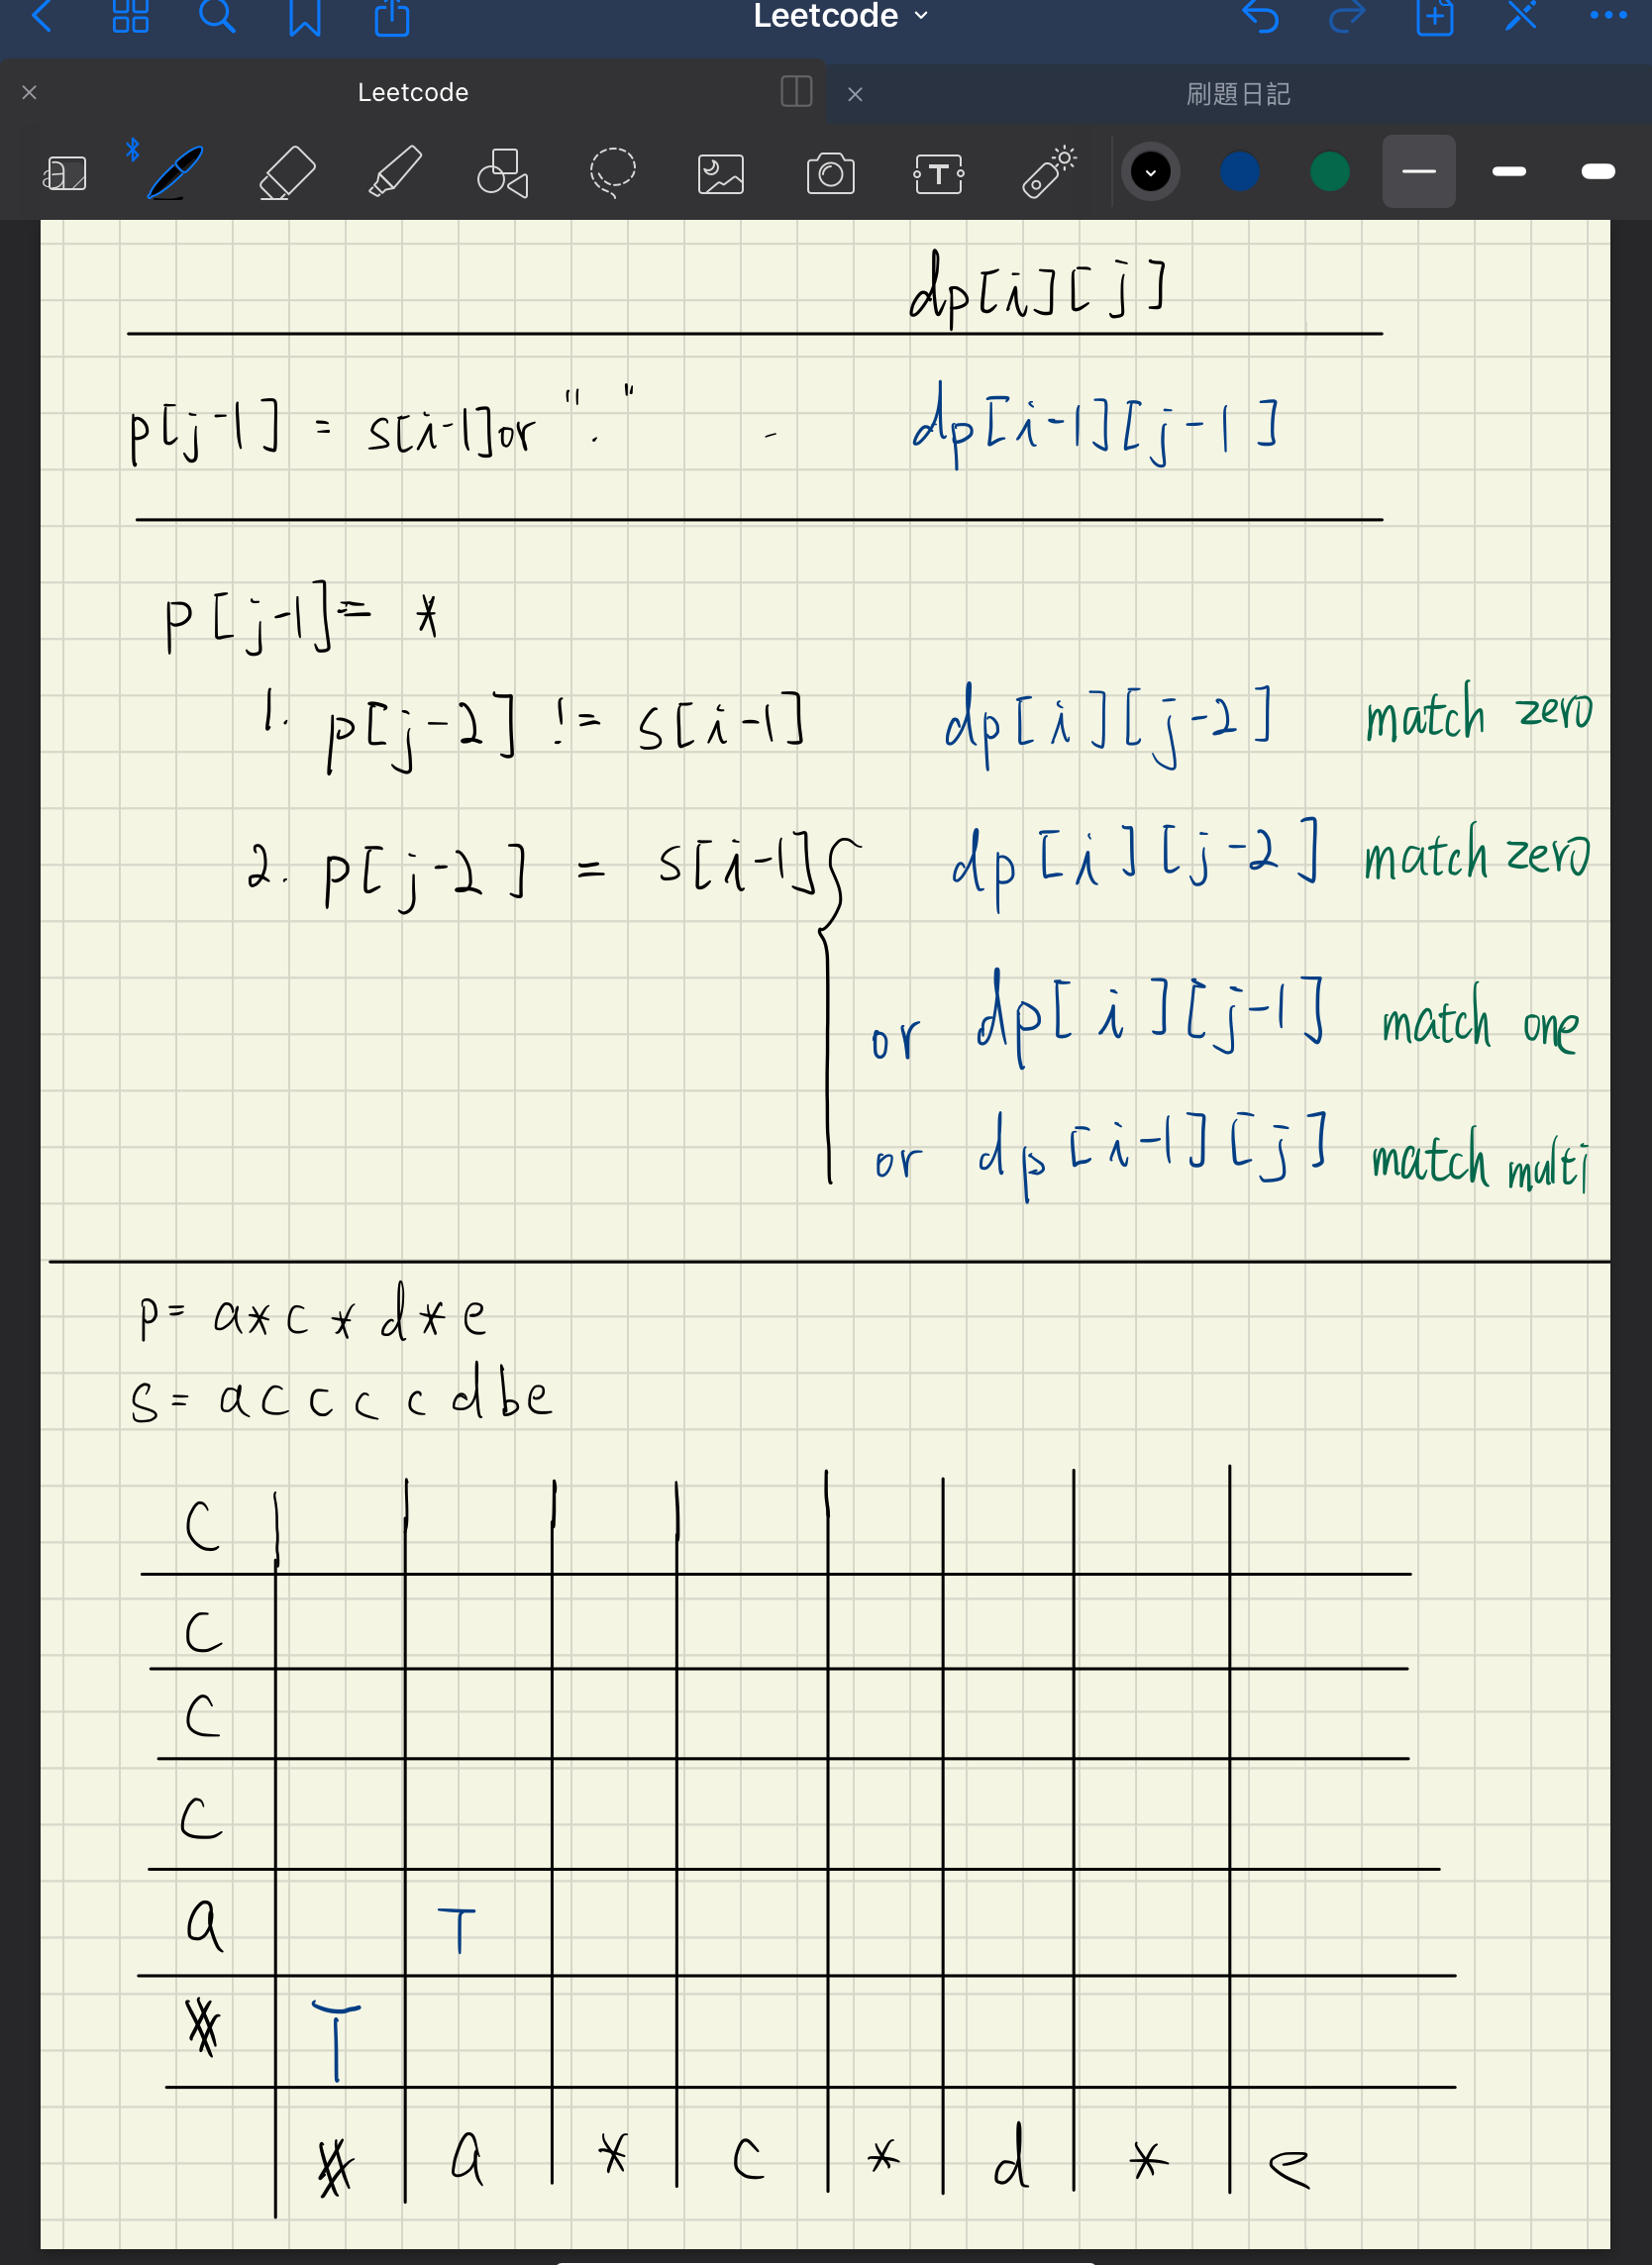 Leetcode
Leetcode
刷題日記
dp[i][j]
p[j-1] = s[i-1] or "." - dp[i-1][j-1]
p[j-1] = *
1. p[j-2] != s[i-1] dp[i][j-2] match zero
2. p[j-2] = s[i-1] { dp[i][j-2] match zero
or dp[i][j-1] match one
or dp[i-1][j] match multi
p= a*c*d*e
s= accccdbe
C
C
C
C
a T
T
a * c * d * e